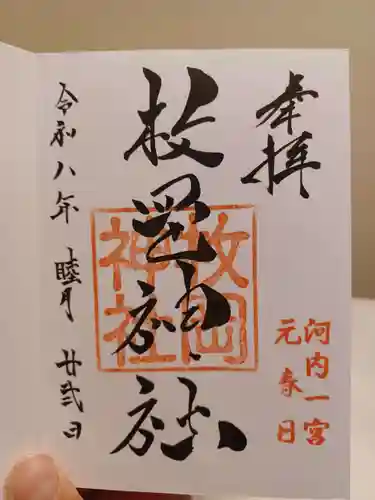 奉拝
河内一宮
元春日
枚岡神社
枚岡
神社
令和八年 睦月 廿弐日